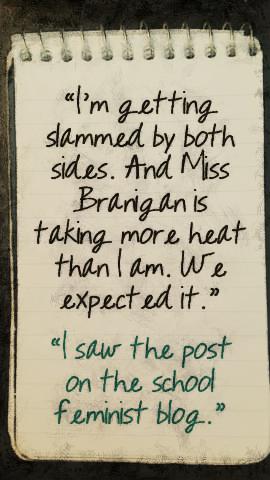 “I'm getting
slammed by both
sides. And Miss
Branigan is
taking more heat
than I am. We
expected it.”
“I saw the post
on the school
feminist blog.”